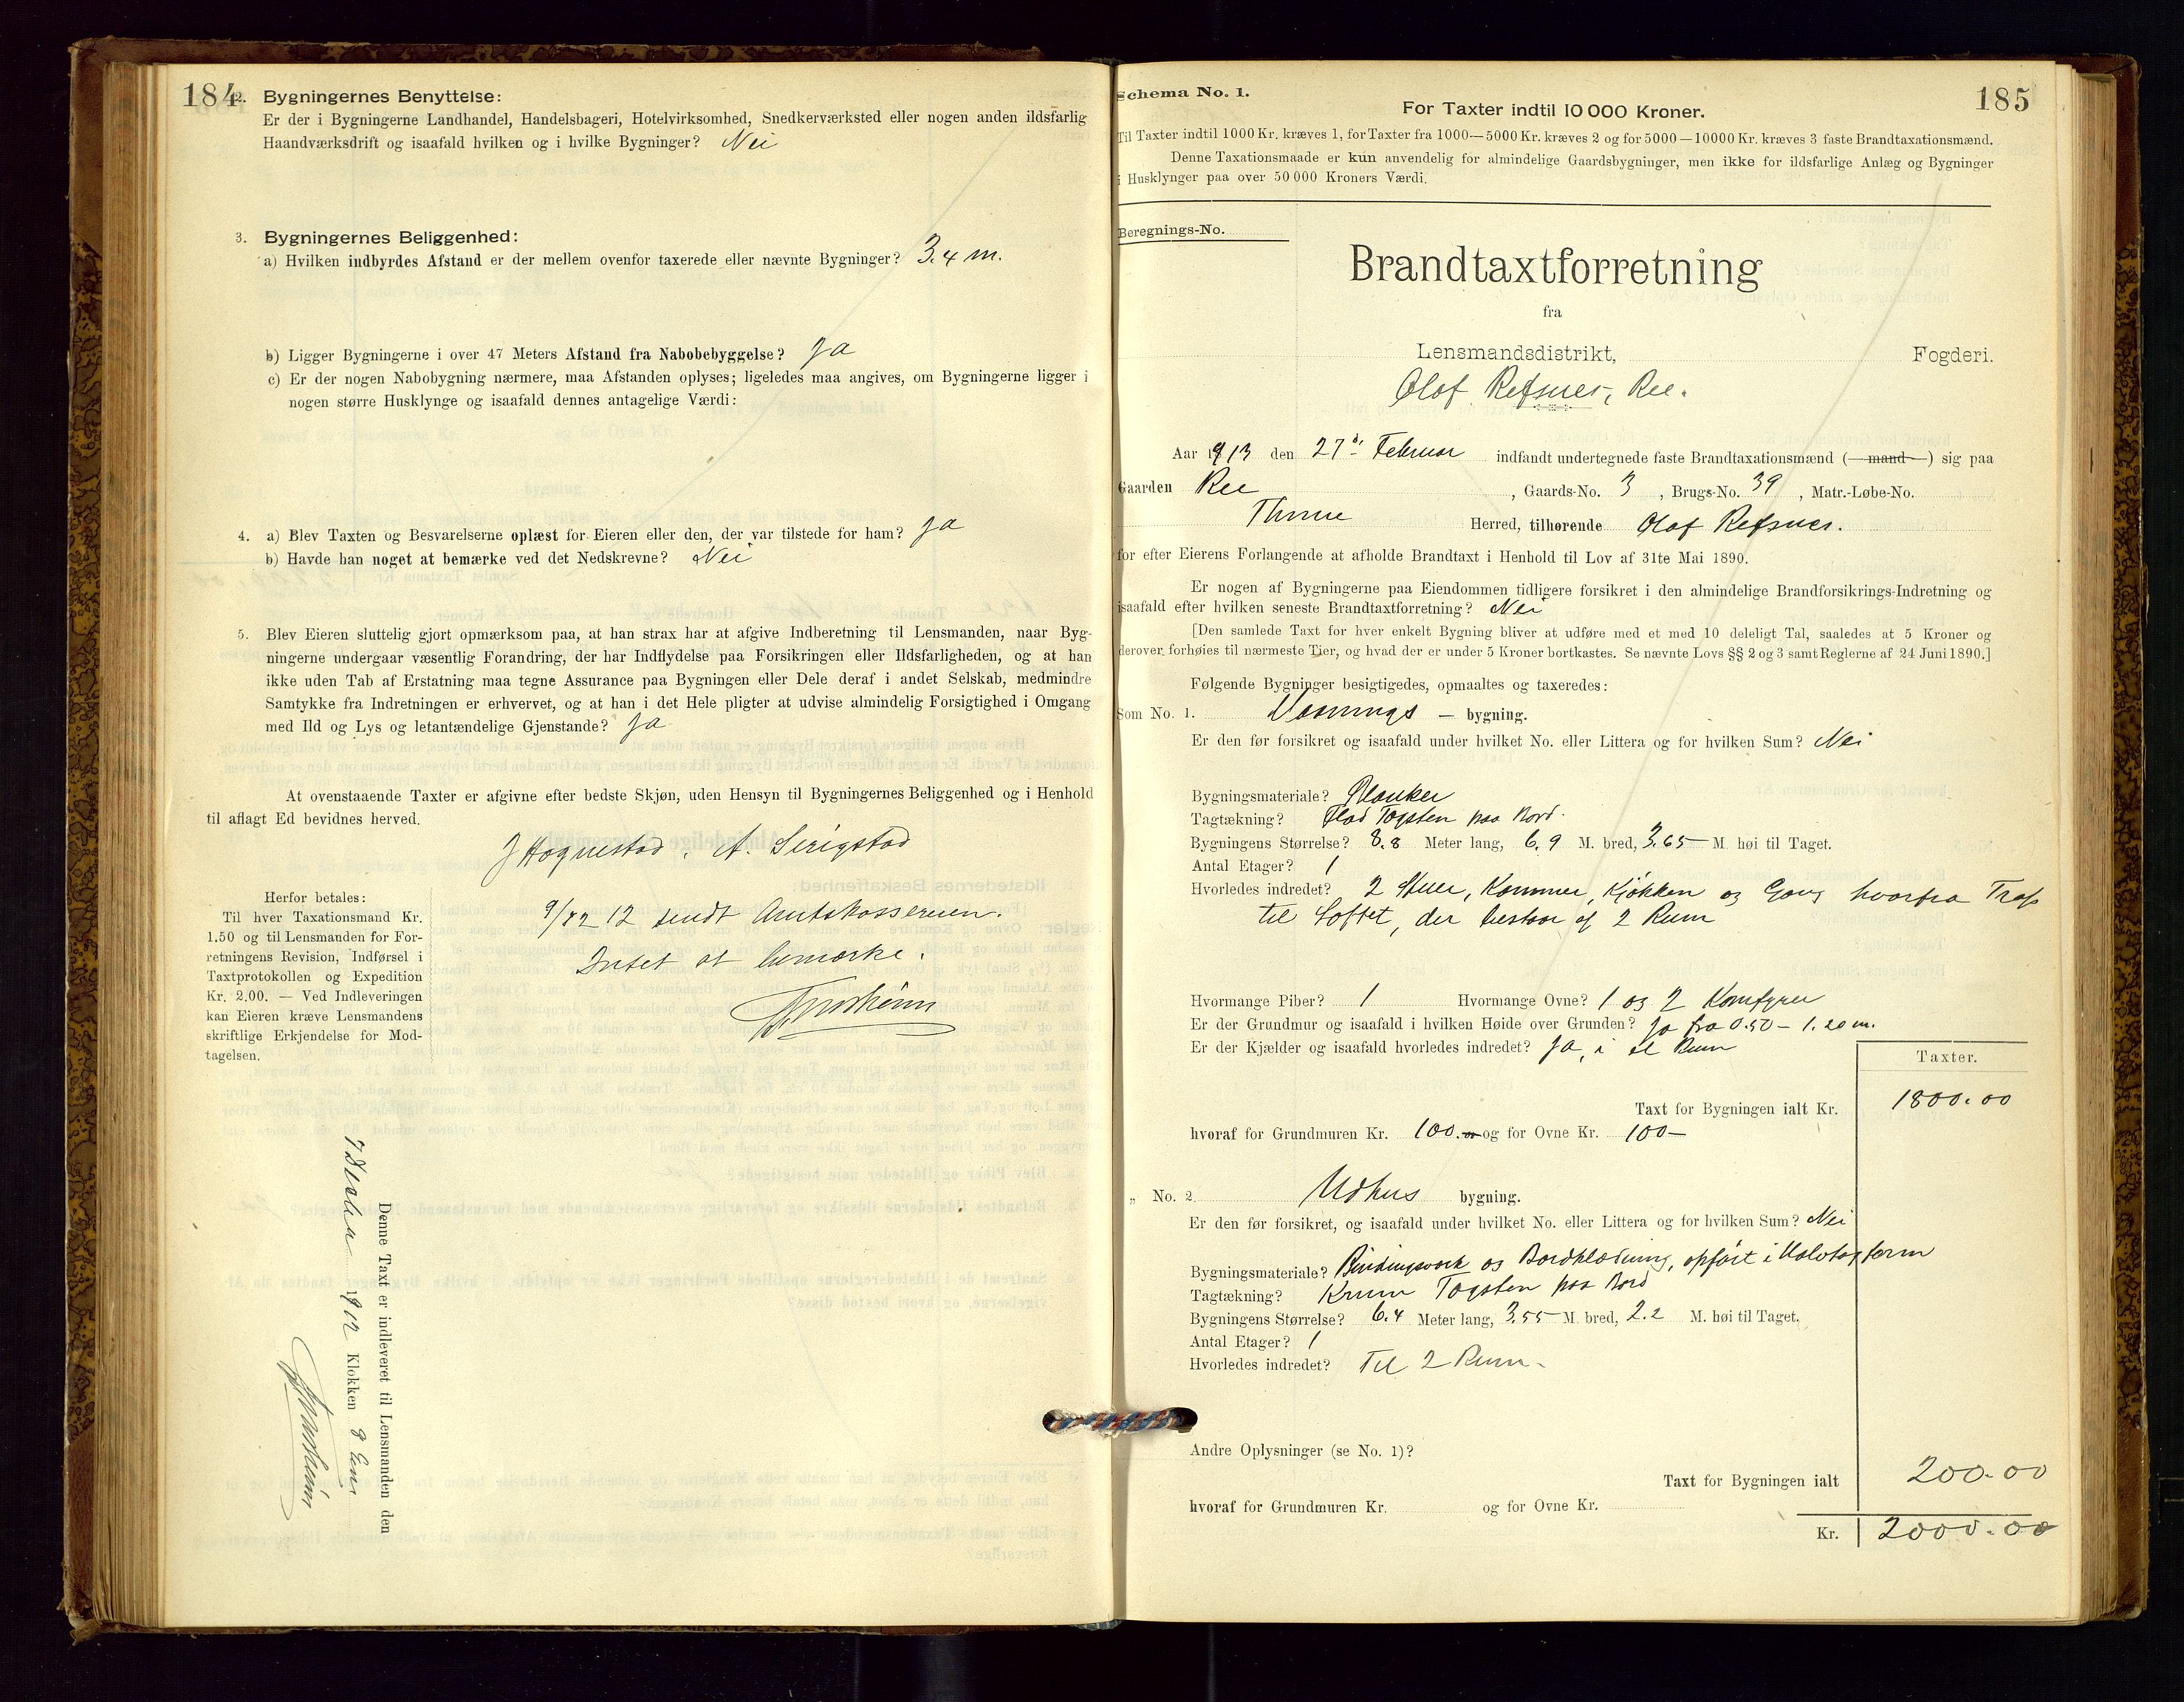 184
2. Bygningernes Benyttelse:
Er der i Bygningerne Landhandel, Handelsbageri, Hotelvirksomhed, Snedkerværksted eller nogen anden ildsfarlig
Haandværksdrift og isaafald hvilken og i hvilke Bygninger? Nei
3. Bygningernes Beliggenhed:
a) Hvilken indbyrdes Afstand er der mellem ovenfor taxerede eller nævnte Bygninger? 3.4 m.
b) Ligger Bygningerne i over 47 Meters Afstand fra Nabobebyggelse? Ja
c) Er der nogen Nabobygning nærmere, maa Afstanden oplyses; ligeledes maa angives, om Bygningerne ligger i
nogen større Husklynge og isaafald dennes antagelige Værdi:
4. a) Blev Taxten og Besvarelserne oplæst for Eieren eller den, der var tilstede for ham? Ja
b) Havde han noget at bemærke ved det Nedskrevne? Nei
5. Blev Eieren sluttelig gjort opmærksom paa, at han strax har at afgive Indberetning til Lensmanden, naar Byg-
ningerne undergaar væsentlig Forandring, der har Indflydelse paa Forsikringen eller Ildsfarligheden, og at han
ikke uden Tab af Erstatning maa tegne Assurance paa Bygningen eller Dele deraf i andet Selskab, medmindre
Samtykke fra Indretningen er erhvervet, og at han i det Hele pligter at udvise almindelig Forsigtighed i Omgang
med Ild og Lys og letantændelige Gjenstande? Ja
At ovenstaaende Taxter er afgivne efter bedste Skjøn, uden Hensyn til Bygningernes Beliggenhed og i Henhold
til aflagt Ed bevidnes herved.
J Hognestad. A. Serigstad
Herfor betales:
Til hver Taxationsmand Kr.
1.50 og til Lensmanden for For-
retningens Revision, Indførsel i
Taxtprotokollen og Expedition
Kr. 2.00. — Ved Indleveringen
kan Eieren kræve Lensmandens
skriftlige Erkjendelse for Mod-
tagelsen.
9/12 12 sendt Amtskassereren.
Intet at bemærke.
Denne Taxt er indleveret til Lensmanden den
7 Decbr 1912 Klokken 8 Em
185
Schema No. 1.
For Taxter indtil 10 000 Kroner.
Til Taxter indtil 1000 Kr. kræves 1, for Taxter fra 1000—5000 Kr. kræves 2 og for 5000—10000 Kr. kræves 3 faste Brandtaxationsmænd.
Denne Taxationsmaade er kun anvendelig for almindelige Gaardsbygninger, men ikke for ildsfarlige Anlæg og Bygninger
i Husklynger paa over 50 000 Kroners Værdi.
Beregnings-No.
Brandtaxtforretning
fra
Lensmandsdistrikt, Fogderi.
Olaf Refsnes, Ree.
Aar 1913 den 27d Februar indfandt undertegnede faste Brandtaxationsmænd (—mand—) sig paa
Gaarden Ree, Gaards-No. 3, Brugs-No. 39, Matr.-Løbe-No.
Thime Herred, tilhørende Olaf Refsnes.
for efter Eierens Forlangende at afholde Brandtaxt i Henhold til Lov af 31te Mai 1890.
Er nogen af Bygningerne paa Eiendommen tidligere forsikret i den almindelige Brandforsikrings-Indretning og
isaafald efter hvilken seneste Brandtaxtforretning? Nei
[Den samlede Taxt for hver enkelt Bygning bliver at udføre med et med 10 deleligt Tal, saaledes at 5 Kroner og
derover forhøies til nærmeste Tier, og hvad der er under 5 Kroner bortkastes. Se nævnte Lovs §§ 2 og 3 samt Reglerne af 24 Juni 1890.]
Følgende Bygninger besigtigedes, opmaaltes og taxeredes:
Som No. 1. Vaanings — bygning.
Er den før forsikret og isaafald under hvilket No. eller Littera og for hvilken Sum? Nei
Bygningsmateriale? Planker
Tagtækning? Flad Tagsten paa Bord.
Bygningens Størrelse? 8.8 Meter lang, 6.9 M. bred, 3.65 M høi til Taget.
Antal Etager? 1
Hvorledes indredet? 2 Stuer, Kammer, Kjøkken og Gang hvorfra Trap
til Loftet, der bestaar af 2 Rum
Hvormange Piber? 1 Hvormange Ovne? 1 og 2 Komfyrer
Er der Grundmur og isaafald i hvilken Høide over Grunden? Ja fra 0.50 - 1.20 m.
Er der Kjælder og isaafald hvorledes indredet? Ja, i et Rum
Taxter.
Taxt for Bygningen ialt Kr. 1800.00
hvoraf for Grundmuren Kr. 100.00 og for Ovne Kr. 100 —
„ No. 2 Udhus bygning.
Er den før forsikret, og isaafald under hvilket No. eller Littera og for hvilken Sum? Nei
Bygningsmateriale? Bindingsverk og Bordklædning, opført i Halvtagform
Tagtækning? Krum Tagsten paa Bord
Bygningens Størrelse? 6.4 Meter lang, 3.55 M. bred, 2.2 M. høi til Taget.
Antal Etager? 1
Hvorledes indredet? Til 2 Rum.
Andre Oplysninger (se No. 1)?
Taxt for Bygningen ialt 200.00
hvoraf for Grundmuren Kr. og for Ovne Kr.
Kr. 2000.00